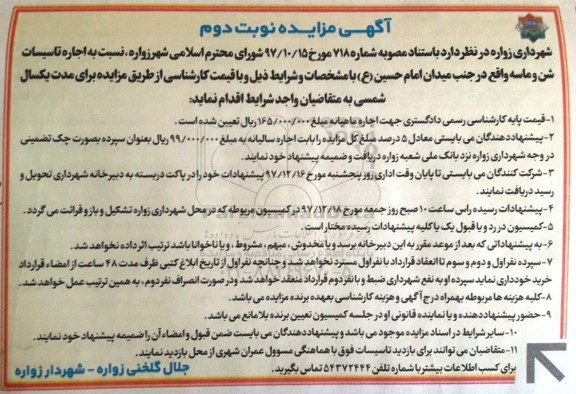 آگهـی مزایـده نوبـت دوم
شهرداری زواره در نظر دارد باستناد مصوبه شماره ۷۱۸ مورخ ۹۷/۱۰/۱۵ شورای محترم اسلامی شهر زواره، نسبت به اجاره تاسیسات
شن و ماسه واقع در جنب میدان امام حسین (ع) با مشخصات و شرایط ذیل و با قیمت کارشناسی از طریق مزایده برای مدت یکسال
شمسی به متقاضیان واجد شرایط اقدام نماید:
۱- قیمت پایه کارشناسی رسمی دادگستری جهت اجاره ماهیانه مبلغ ۱۶۵/۰۰۰/۰۰۰ ریال تعیین شده است.
۲- پیشنهاددهندگان می بایستی معادل ۵ درصد مبلغ کل مزایده را بابت اجاره سالیانه به مبلغ ۹۹/۰۰۰/۰۰۰ ریال بعنوان سپرده بصورت چک تضمینی
در وجه شهرداری زواره نزد بانک ملی شعبه زواره دریافت و ضمیمه پیشنهاد خود نمایند.
۳- شرکت کنندگان می بایستی تا پایان وقت اداری روز پنجشنبه مورخ ۹۷/۱۲/۱۶ پیشنهادات خود را در پاکت دربسته به دبیرخانه شهرداری تحویل و
رسید دریافت نمایند.
۴- پیشنهادات رسیده راس ساعت ۱۰ صبح روز جمعه مورخ ۹۷/۱۲/۱۸ در کمیسیون مربوطه که در محل شهرداری زواره تشکیل و باز و قرائت می گردد.
۵- کمیسیون در رد و یا قبول یک یا کلیه پیشنهادات رسیده مختار است.
۶- به پیشنهاداتی که بعد از موعد مقرر به این دبیرخانه برسد و یا مخدوش، مبهم، مشروط، و یا ناخوانا باشد ترتیب اثر داده نخواهد شد.
۷- سپرده نفر اول و دوم و سوم تا انعقاد قرارداد با نفر اول مسترد نخواهد شد و چنانچه نفر اول از تاریخ ابلاغ کتبی ظرف مدت ۴۸ ساعت از امضاء قرارداد
خرید خودداری نماید سپرده او به نفع شهرداری ضبط و با نفر دوم قرارداد منعقد خواهد شد و در صورت انصراف نفر دوم، به همین ترتیب عمل خواهد شد.
۸- کلیه هزینه ها مربوطه بهمراه درج آگهی و هزینه کارشناسی بعهده برنده مزایده می باشد.
۹- حضور پیشنهاد دهنده و یا نماینده قانونی او در جلسه کمیسیون تعیین برنده بلامانع می باشد.
۱۰- سایر شرایط در اسناد مزایده موجود می باشد و پیشنهاددهندگان می بایست ضمن قبول و امضاء آن را ضمیمه پیشنهاد خود نمایند.
۱۱- متقاضیان می توانند برای بازدید تاسیسات فوق با هماهنگی مسوول عمران شهری از محل بازدید نمایند.
برای کسب اطلاعات بیشتر با شماره تلفن ۵۴۳۷۲۴۴۴ تماس بگیرید.
جلال گلخنی زواره - شهردار زواره